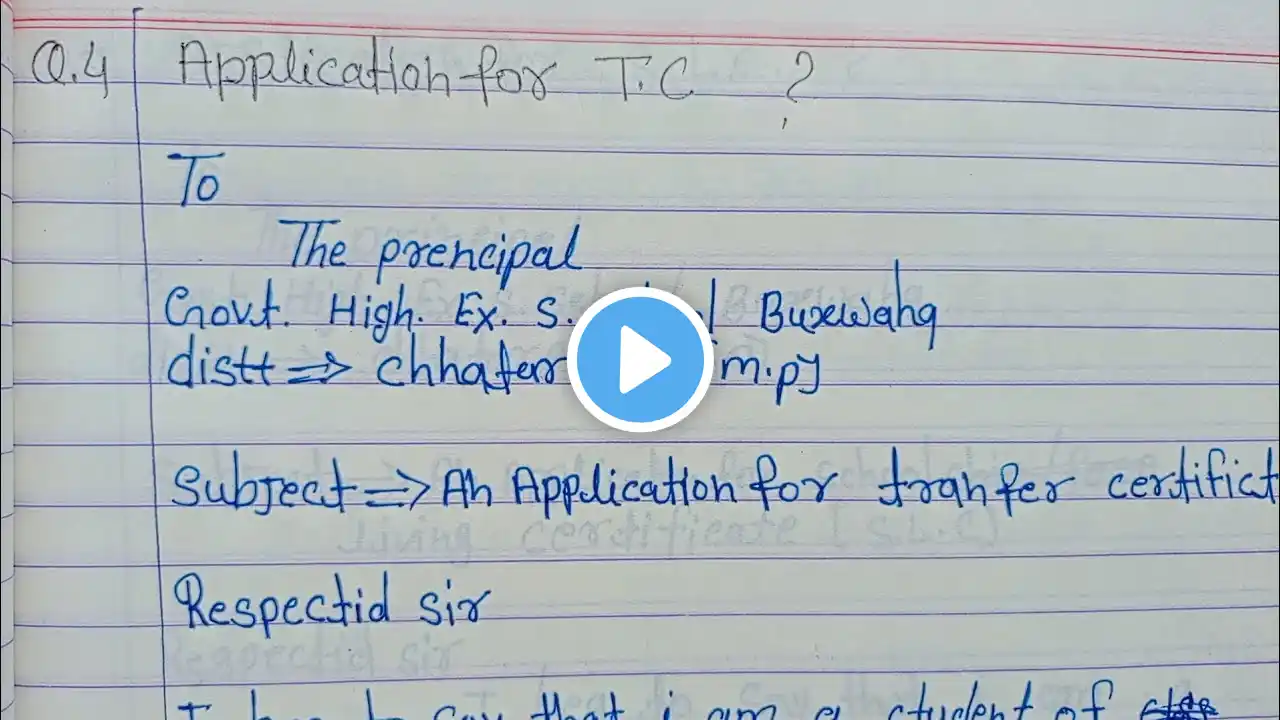 Q.4 Application for T.C ?
To
The prencipal
Govt. High. Ex. S. Buxwaha
distt => chhater m.p]
Subject => An Application for tranfer certifict
Respectid sir
I say that i am a student of